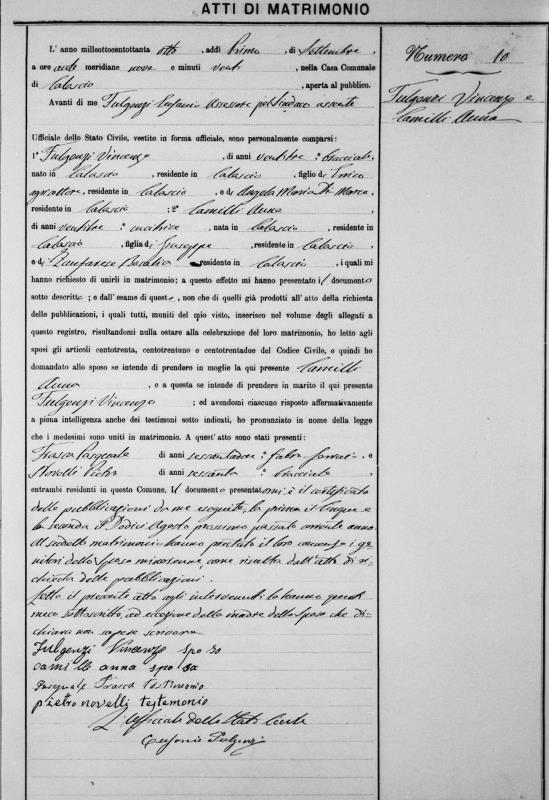 ATTI DI MATRIMONIO
Numero 10
Fulgenzi Vincenzo e
Camilli Anna
L' anno milleottocentottanta otto , addì Primo , di Settembre ,
a ore anti meridiane nove e minuti venti , nella Casa Comunale
di Calascio , aperta al pubblico.
Avanti di me Fulgenzi Eufranio Assessore pel Sindaco assente
Ufficiale dello Stato Civile, vestito in forma ufficiale, sono personalmente comparsi:
1° Fulgenzi Vincenzo , di anni ventitre , bracciale ,
nato in Calascio , residente in Calascio , figlio di Enrico
agricoltore , residente in Calascio , e di Angela Maria Di Marco ,
residente in Calascio ; 2° Camilli Anna ,
di anni ventitre , cucitrice , nata in Calascio , residente in
Calascio , figlia di Giuseppe , residente in Calascio ,
e di Rosalia residente in Calascio , i quali mi
hanno richiesto di unirli in matrimonio; a questo effetto mi hanno presentato il documento
sotto descritto; e dall'esame di questo , non che di quelli già prodotti all'atto della richiesta
delle pubblicazioni, i quali tutti, muniti del mio visto, inserisco nel volume degli allegati a
questo registro, risultandomi nulla ostare alla celebrazione del loro matrimonio, ho letto agli
sposi gli articoli centotrenta, centotrentuno e centotrentadue del Codice Civile, e quindi ho
domandato allo sposo se intende di prendere in moglie la qui presente Camilli
Anna , e a questa se intende di prendere in marito il qui presente
Fulgenzi Vincenzo ; ed avendomi ciascuno risposto affermativamente
a piena intelligenza anche dei testimoni sotto indicati, ho pronunziato in nome della legge
che i medesimi sono uniti in matrimonio. A quest' atto sono stati presenti:
Frasca Pasquale di anni , e
Novelli Pietro di anni sessanta , bracciale ,
entrambi residenti in questo Comune. Il documento presentatomi è il certificato
delle pubblicazioni da me eseguite, la prima il cinque e
la seconda il Dodici Agosto prossimo passato corrente anno
Al suddetto matrimonio hanno prestato il loro consenso i ge-
nitori dello Sposo minorenne, come risulta dall'atto di ri-
chiesta delle pubblicazioni.
Letto il presente atto agli intervenuti lo hanno questi
meco sottoscritto, ad eccezione della madre dello Sposo che di-
chiara non sapere scrivere
Fulgenzi Vincenzo sposo
camilli anna sposa
Pasquale Frasca testimonio
pietro novelli testemonio
L'Ufficiale dello Stato Civile
Eufranio Fulgenzi